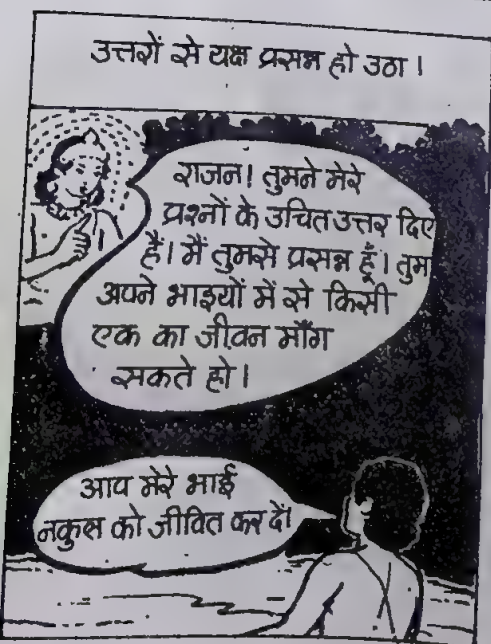 उत्तरों से यक्ष प्रसन्न हो उठा ।
राजन! तुमने मेरे
प्रश्नों के उचित उत्तर दिए
हैं। मैं तुमसे प्रसन्न हूँ। तुम
अपने भाइयों में से किसी
एक का जीवन माँग
सकते हो।
आप मेरे भाई
नकुल को जीवित कर दें।